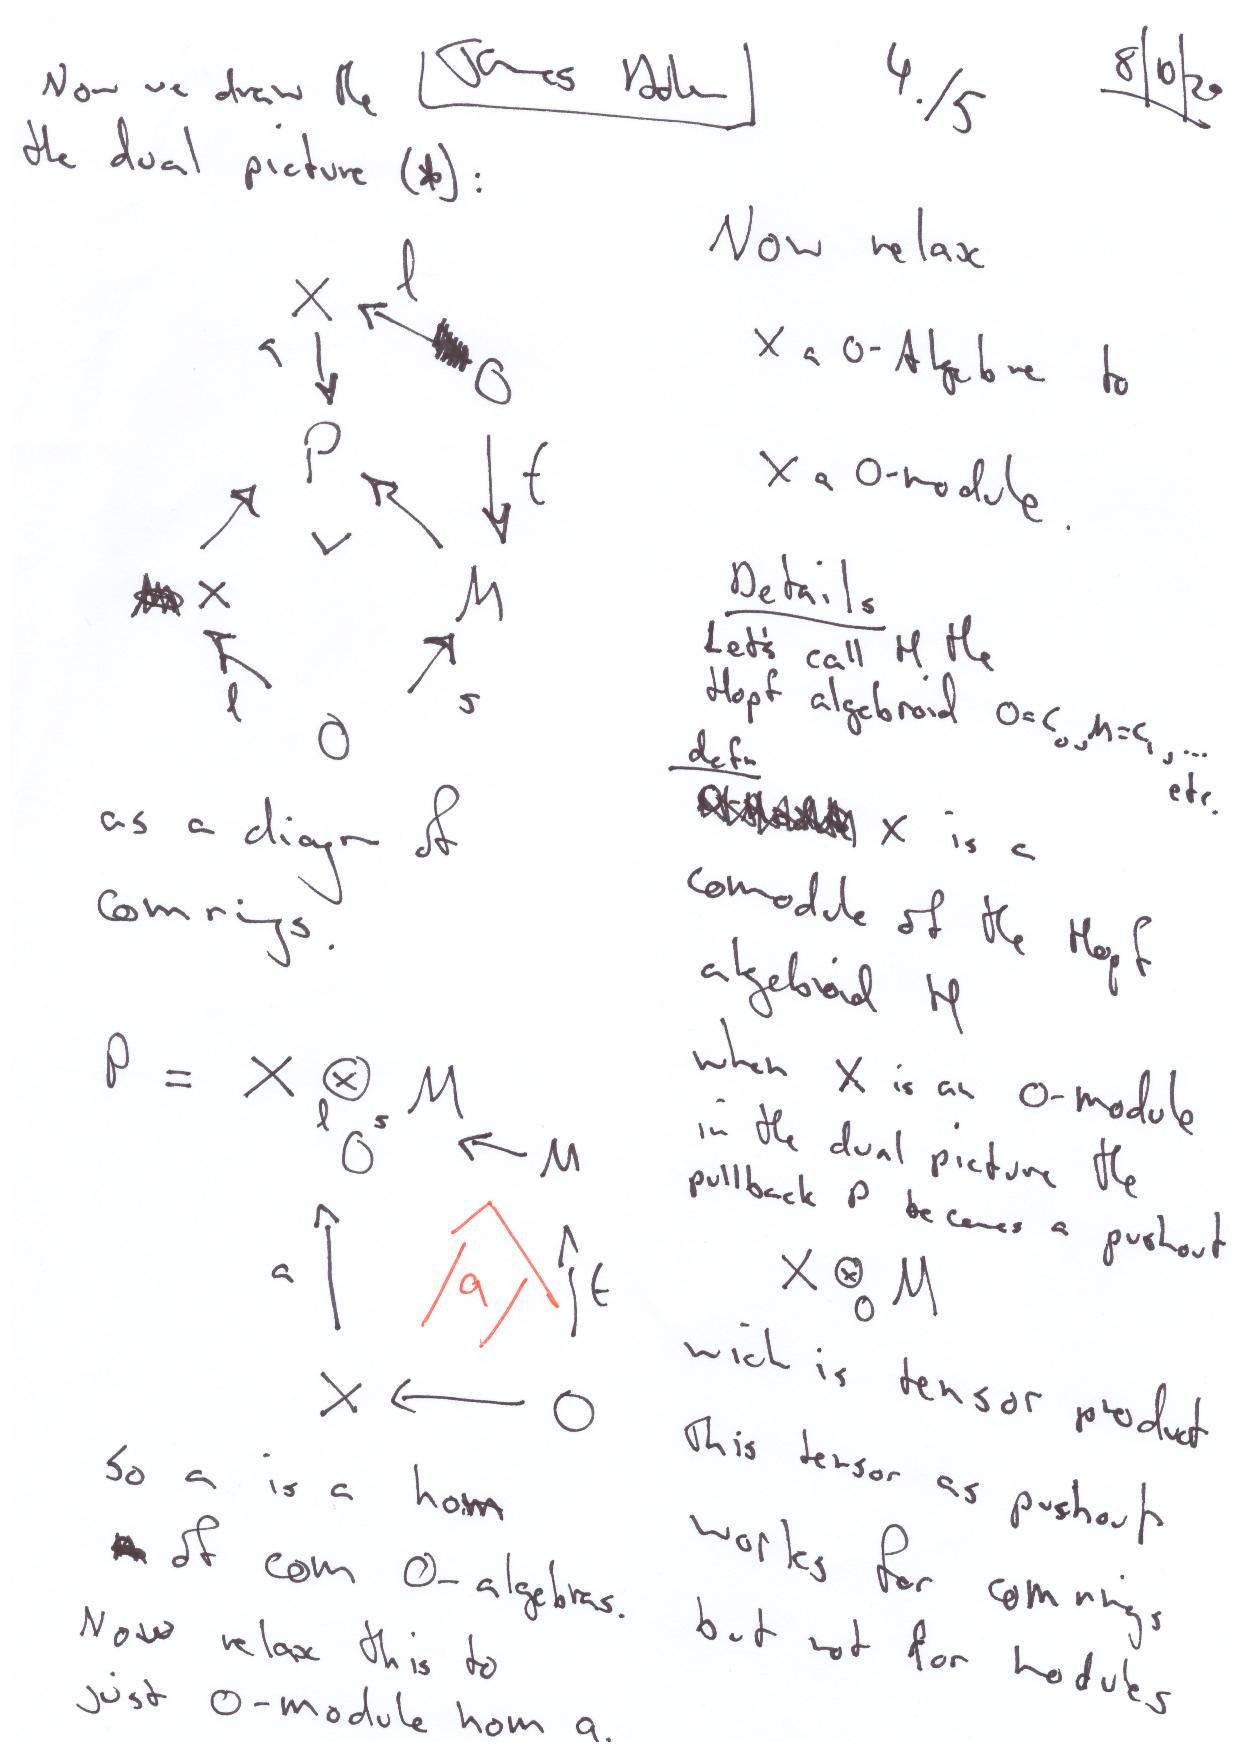 Now we draw the
James
4./5
8/10/20
the dual picture (*):
X
l
a
O
P
t
X
M
l
s
O
as a diagm of
Com rings.
P = X ⊗ M
l O s
M
a
a
t
X
O
So a is a hom
of com O-algebras.
Now relax this to
just O-module hom a.
Now relax
X a O-Algebra to
X a O-module.
Details
Let's call H the
Hopf algebroid O=C₀, M=C₁, ...
etc.
defn
X is a
comodule of the Hopf
algebroid H
when X is an O-module
in the dual picture the
pullback P becomes a pushout
X ⊗ M
O
wich is tensor product
This tensor as pushout
works for com rings
but not for modules